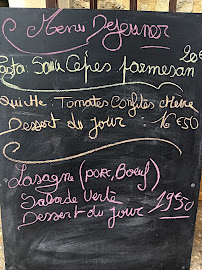 Menu Dejeuner
20€
Pasta: Sauce Cèpes parmesan
Quiche: Tomates Confites Chèvre
Dessert du jour : 16€50
Lasagne (Porc, Boeuf)
Salade Verte
Dessert du jour 1950